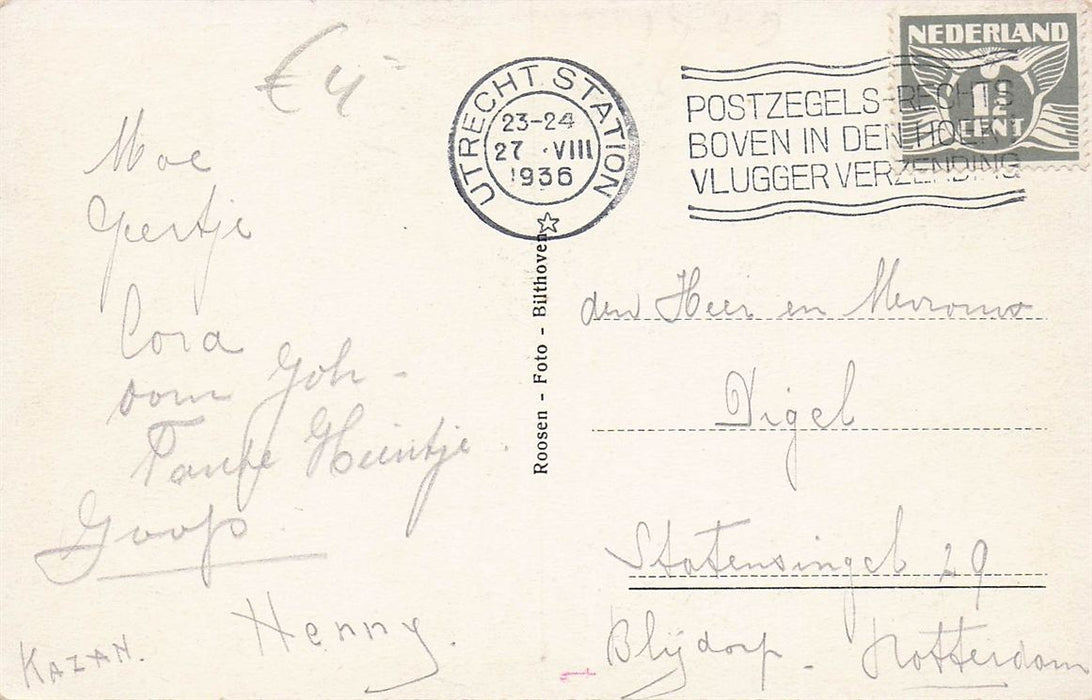 € 4-
Moe
Geertje
Cora
oom Joh -
Tante Heintje.
Joop
Henny.
KAZAN.
UTRECHT STATION
23-24
27 VIII
1936
POSTZEGELS-RECHTS
BOVEN IN DEN HOEK!
VLUGGER VERZENDING
NEDERLAND
1½
CENT
Roosen - Foto - Bilthoven
den Heer en Mevrouw
Digel
Statensingel 29
Blijdorp - Rotterdam